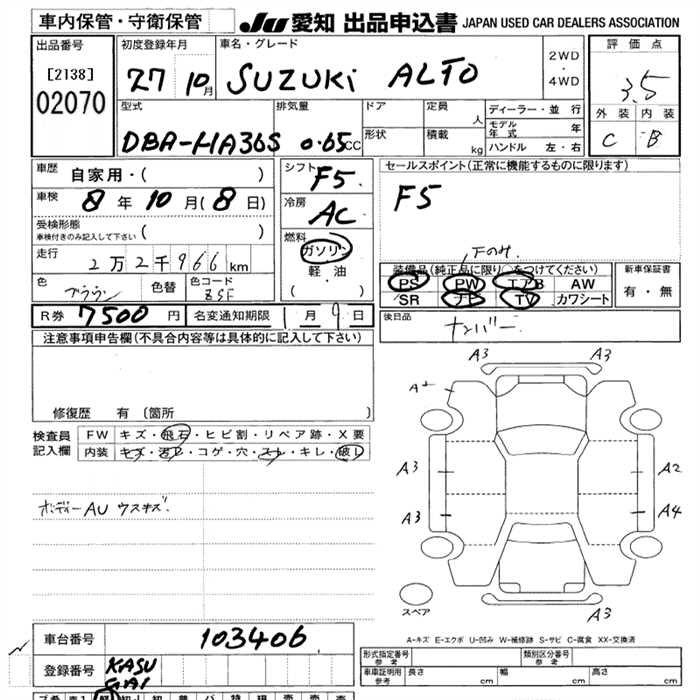 車内保管・守衛保管 JU 愛知 出品申込書 JAPAN USED CAR DEALERS ASSOCIATION
出品番号 初度登録年月 車名・グレード 評価点
[2138] 27 10月 SUZUKi ALTO 2WD・4WD 3.5
02070
型式 排気量 ドア 定員 人 ディーラー・並行 外装 内装
形状 積載 kg モデル年式 年
DBA-HA36S 0.65CC ハンドル 左・右 C B
車歴 自家用・( ) シフト F5 セールスポイント(正常に機能するものに限ります)
車検 8年10月(8日) 冷房 AC F5
受検形態 ( )
車検付きのみ記入して下さい
燃料 ガソリン 軽油 ・( )
走行 2万2千966km
Fのみ
装備品(純正品に限り○をつけてください) 新車保証書
色 ブラウン 色替 色コード ZSF PS PW エアB AW 有・無
SR ナビ TV カワシート
R券 7500円 名変通知期限 1月9日 後日品 ナンバー
注意事項申告欄(不具合内容等は具体的に記入して下さい)
修復歴 有〔箇所 〕
検査員記入欄 FW キズ・飛石・ヒビ割・リペア跡・X要
内装 キズ・汚レ・コゲ・穴・スレ・キレ・破レ
ボディーAU ウスキズ
A3 A3
A2
A3 A2
A3 A4
スペア A3
A-キズ E-エクボ U-凹み W-補修跡 S-サビ C-腐食 XX-交換済
車台番号 103406
登録番号 KASUGAI
形式指定番号 参考 類別区分番号 参考
車庫証明用 参考 長さ cm 幅 cm 高さ cm